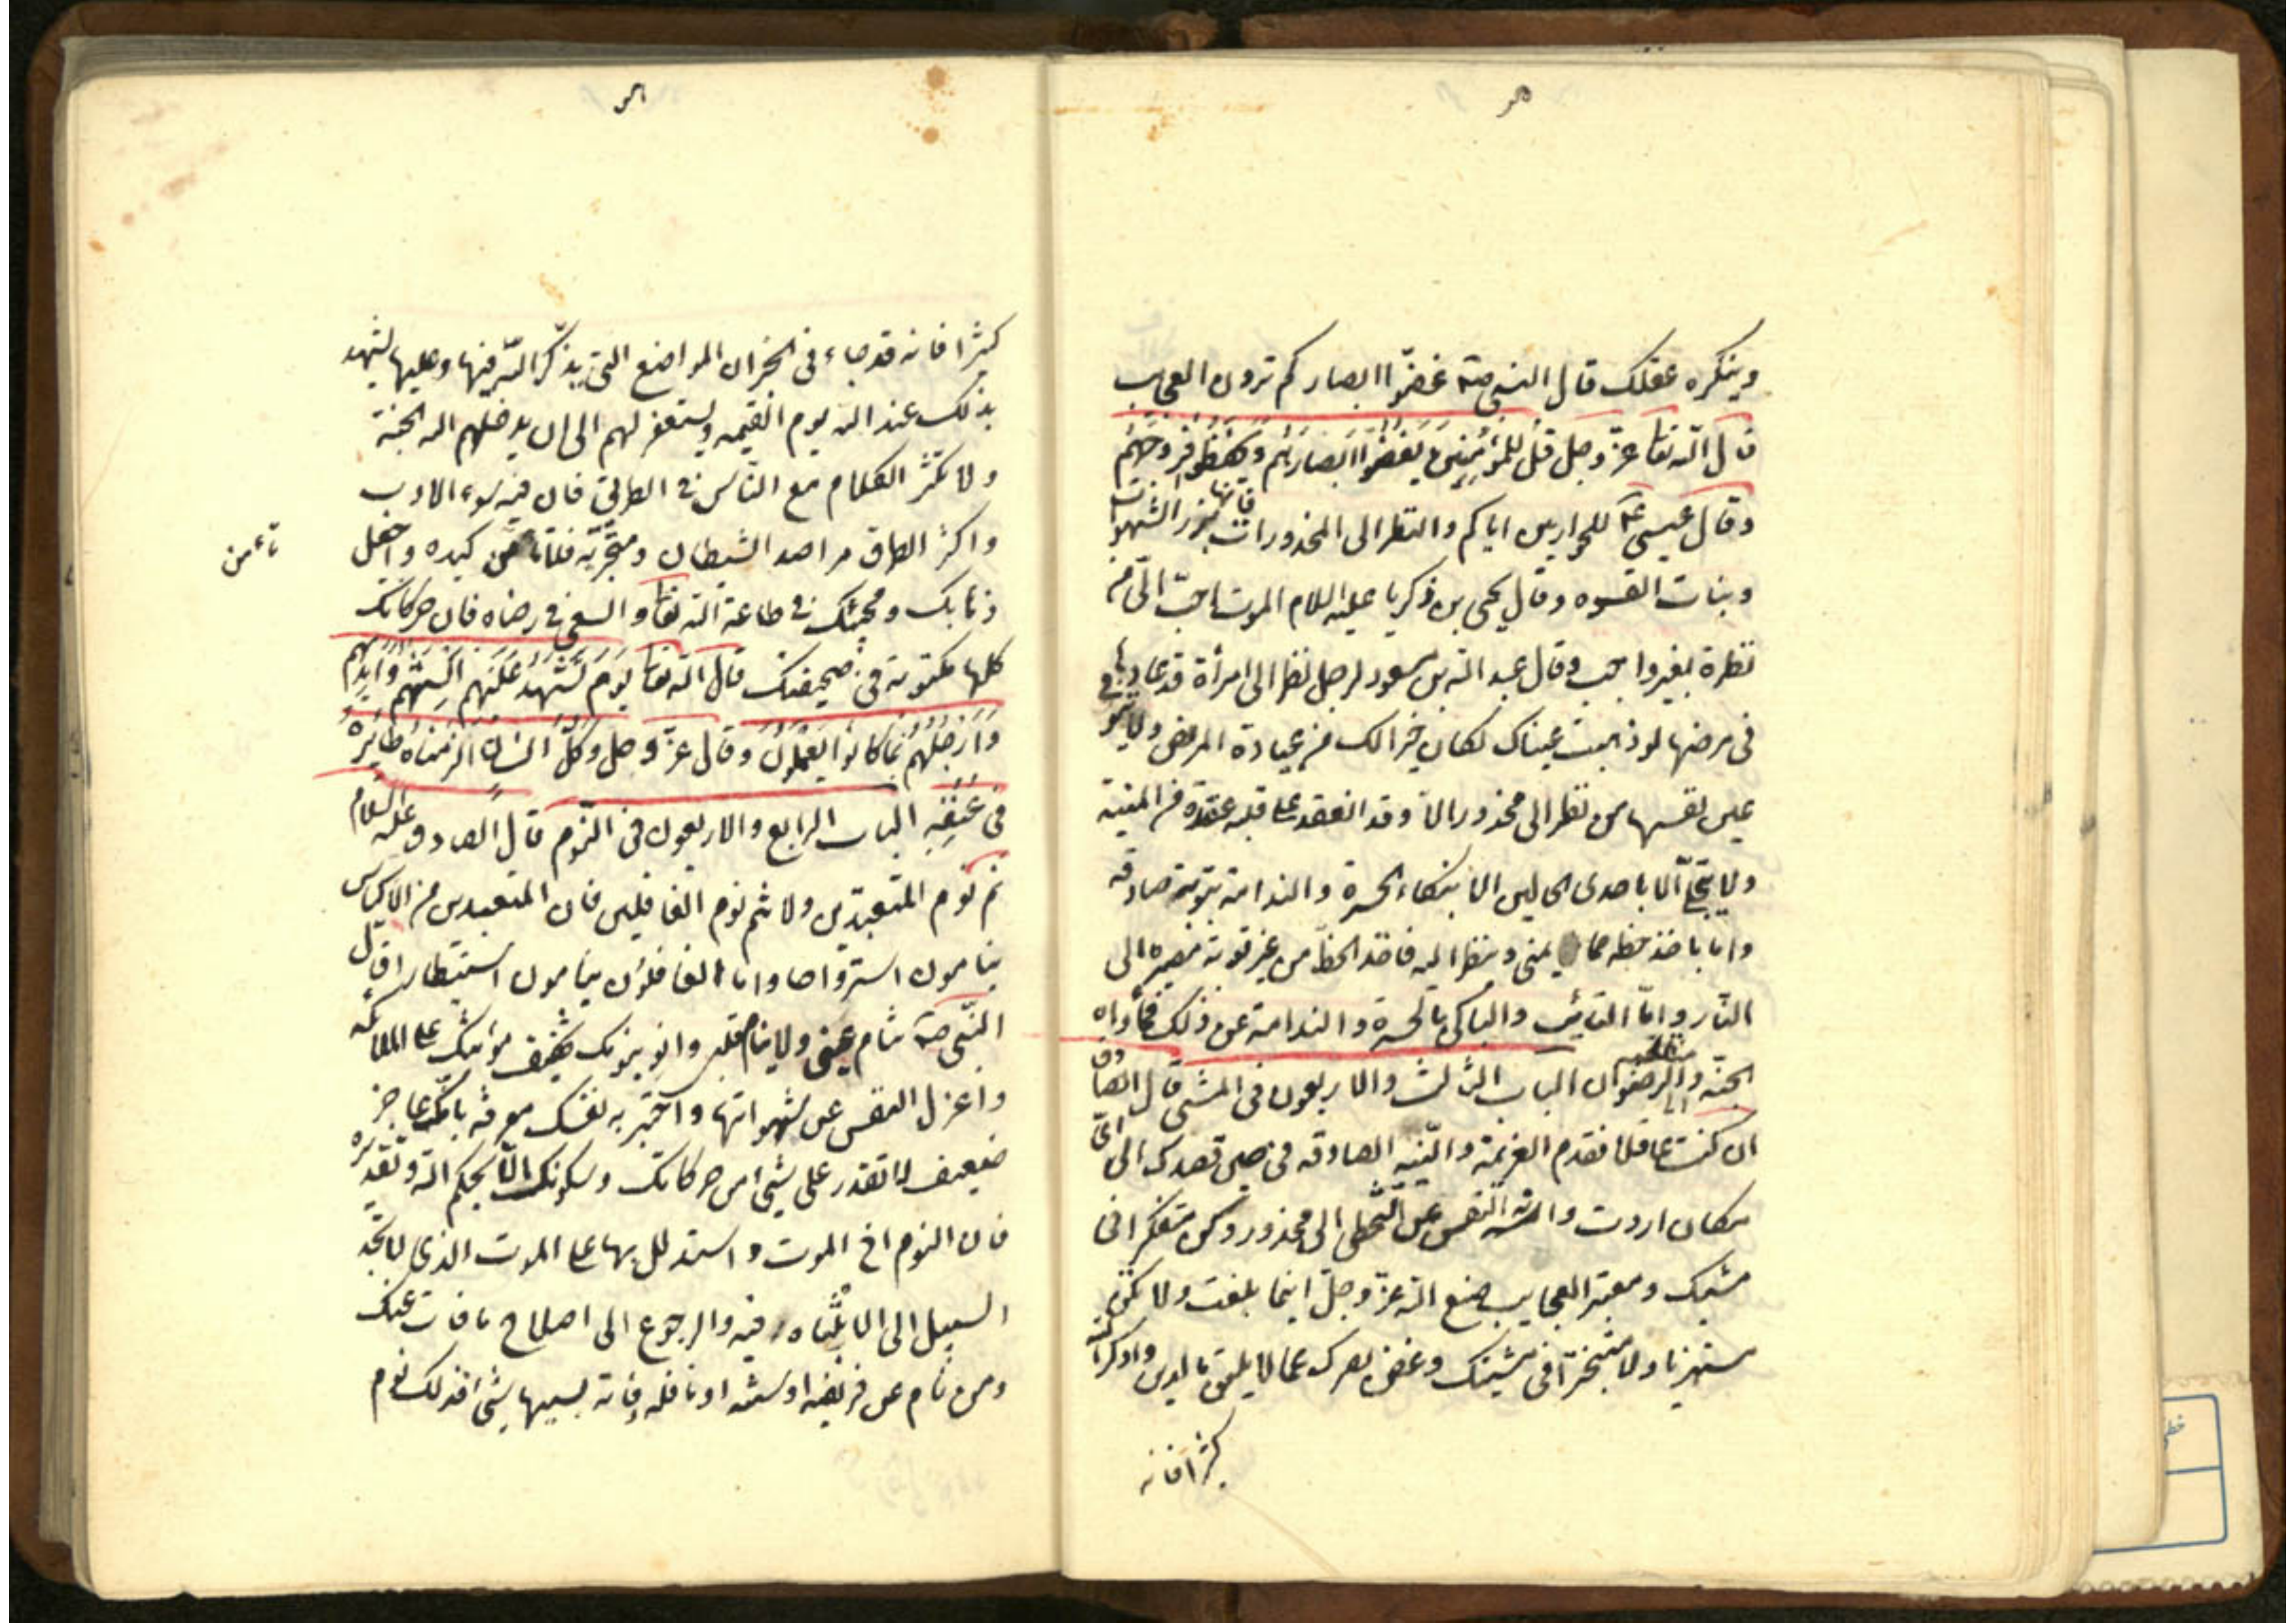 وينكره عقلك قال النبي صم غضّوا ابصاركم ترون العجايب
قال الله تعا عز وجل قل للمؤمنين يغضوا ابصارهم ويحفظوا فروجهم
وقال عيسى عم للحواريين اياكم والنظر الى المحذورات فانها بذر الشهوات
ونبات القسوه وقال يحيى بن زكريا عليه السلام الموت احبّ الىّ من
نظرة بغير واجب وقال عبد الله بن مسعود لرجل نظر الى امرأة قد عادها
فى مرضها لو ذهبت عيناك لكان خيرا لك من عيادة المريض ولا
عين نصيبها من نظر الى محذور الا وقد انعقد على قلبه عقدة من المنية
ولا ينحلّ الا باحدى الحالين اما ببكاء الحسرة والندامة بتوبة صادقه
واما باخذ حظه مما يمنى وينظر اليه فاخذ الحظّ من غير توبة مصيره الى
النّار وامّا التائب والباكى بالحسرة والندامة عن ذلك فمأواه
الجنّة والرضوان الباب الثالث والاربعون فى المشى قال الصادق
ان كنت عاقلا فقدم العزيمة والنّيه الصادقه فى حين قصدك الى اىّ
مكان اردت وانه النفس عن التخطى الى محذور وكن متفكرا فى
مشيك ومعتبر العجايب صنع الله عزّ وجلّ اينما بلغت ولا تكن
مستهزئا ولا متبخترا فى مشيتك وغض بصرك عما لا يليق بالدين واذكر الله
كثيرا فانه
كثيرا فانه قد جاء فى الخبر ان المواضع التى يذكر الله فيها وعليها تشهد
بذلك عند الله يوم القيمه ويستغفر لهم الى ان يدخلهم الله الجنة
ولا تكثر الكلام مع النّاس فى الطريق فان فيه سوء الادب
واكثر الطرق مراصد الشيطان ومتجرّته فلا تأمن كيده واجعل
تأمن
ذهابك ومجيئك فى طاعة الله تعا والسعى فى رضاه فان حركاتك
كلها مكتوبة فى صحيفتك قال الله تعا يوم تشهد عليهم السنتهم وايديهم
وارجلهم بما كانوا يعملون وقال عزّ وجل وكل انسان الزمناه طائره
فى عنقه الباب الرابع والاربعون فى النّوم قال الصادق عليه السلام
نم نوم المتعبدين ولا تنم نوم الغافلين فان المتعبدين من الاكياس
ينامون استرواحا واما الغافلون ينامون استبطارا قال
النّبى صم تنام عينى ولا ينام قلبى وانو بنومك تخفيف مؤنتك على الملائكه
واعزل النفس عن شهواتها واختبر به نفسك معرفة بانّك عاجز
ضعيف لا تقدر على شئ من حركاتك وسكونك الّا بحكم الله وتقديره
فان النوم اخ الموت واستدلل بها على الموت الذى لا تجد
السبيل الى الانتباه فيه والرجوع الى اصلاح ما فات عنك
ومن نام عن فريضه او سنّه او نافله فاته بسببها شئ فذلك نوم